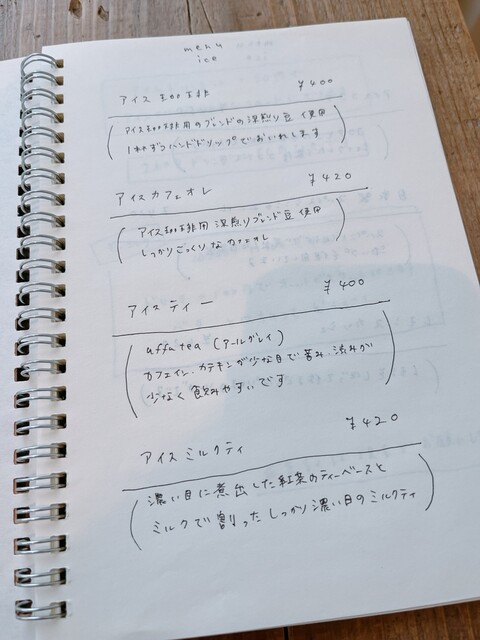 menu
ice
アイス珈琲 ¥400
(アイス珈琲用のブレンドの深煎り豆 使用
1杯ずつハンドドリップでおいれします)
アイスカフェオレ ¥420
(アイス珈琲用 深煎りブレンド豆 使用
しっかりこっくりな カフェオレ)
アイスティー ¥400
(uffu tea (アールグレイ)
カフェイン・カテキンが少な目で苦み・渋みが
少なく 飲みやすいです)
アイスミルクティ ¥420
(濃い目に煮出した紅茶のティーベースと
ミルクで割ったしっかり濃い目のミルクティ)